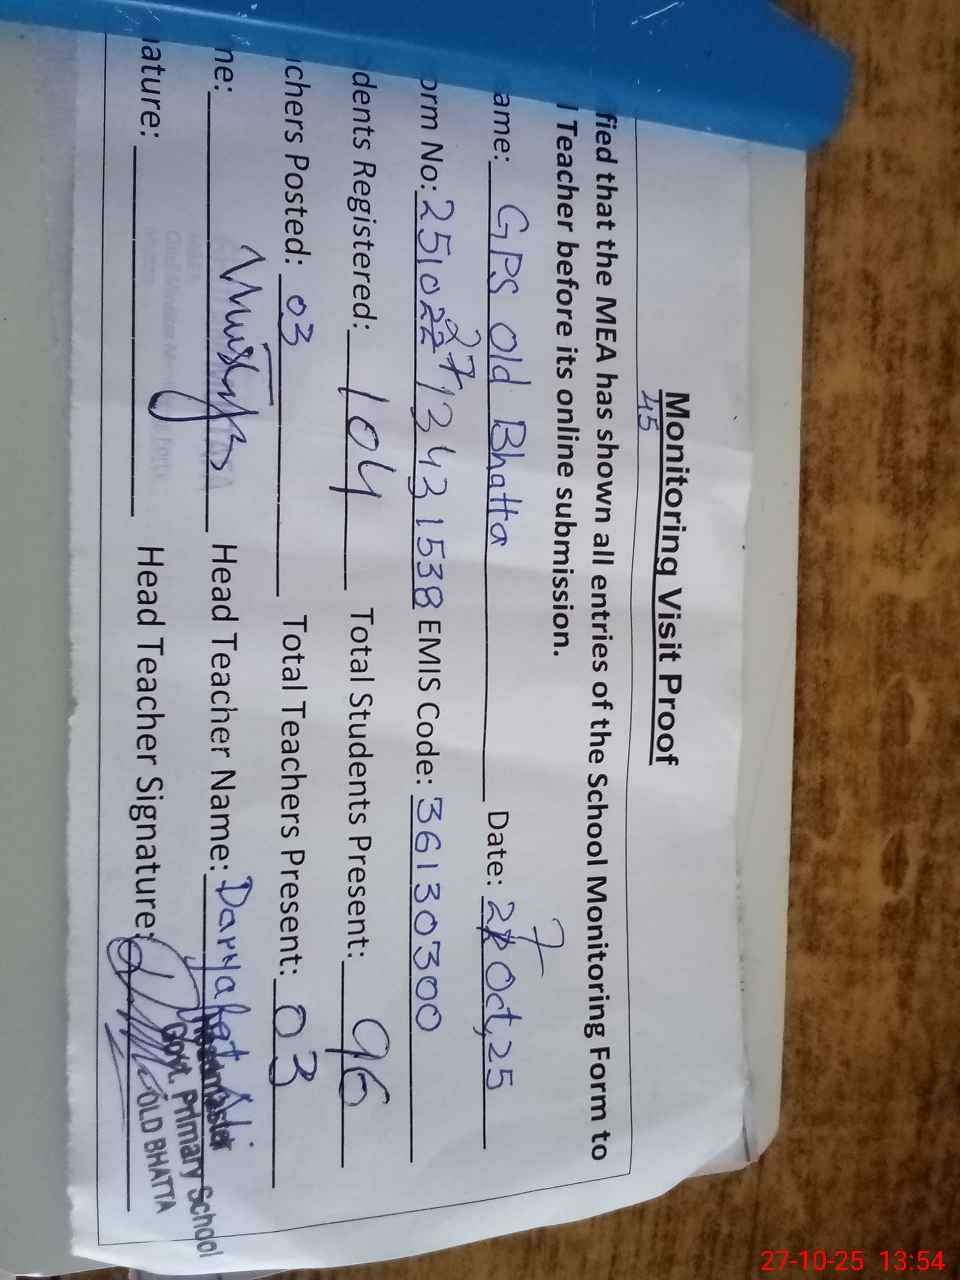 Monitoring Visit Proof
45
fied that the MEA has shown all entries of the School Monitoring Form to
l Teacher before its online submission.
ame: GPS Old Bhatta Date: 27 Oct, 25
orm No: 25102713431538 EMIS Code: 36130300
dents Registered: 104 Total Students Present: 96
chers Posted: 03 Total Teachers Present: 03
me: Head Teacher Name: Daryafat
ature: Head Teacher Signature:
Headmaster
Govt. Primary School
OLD BHATTA
27-10-25 13:54